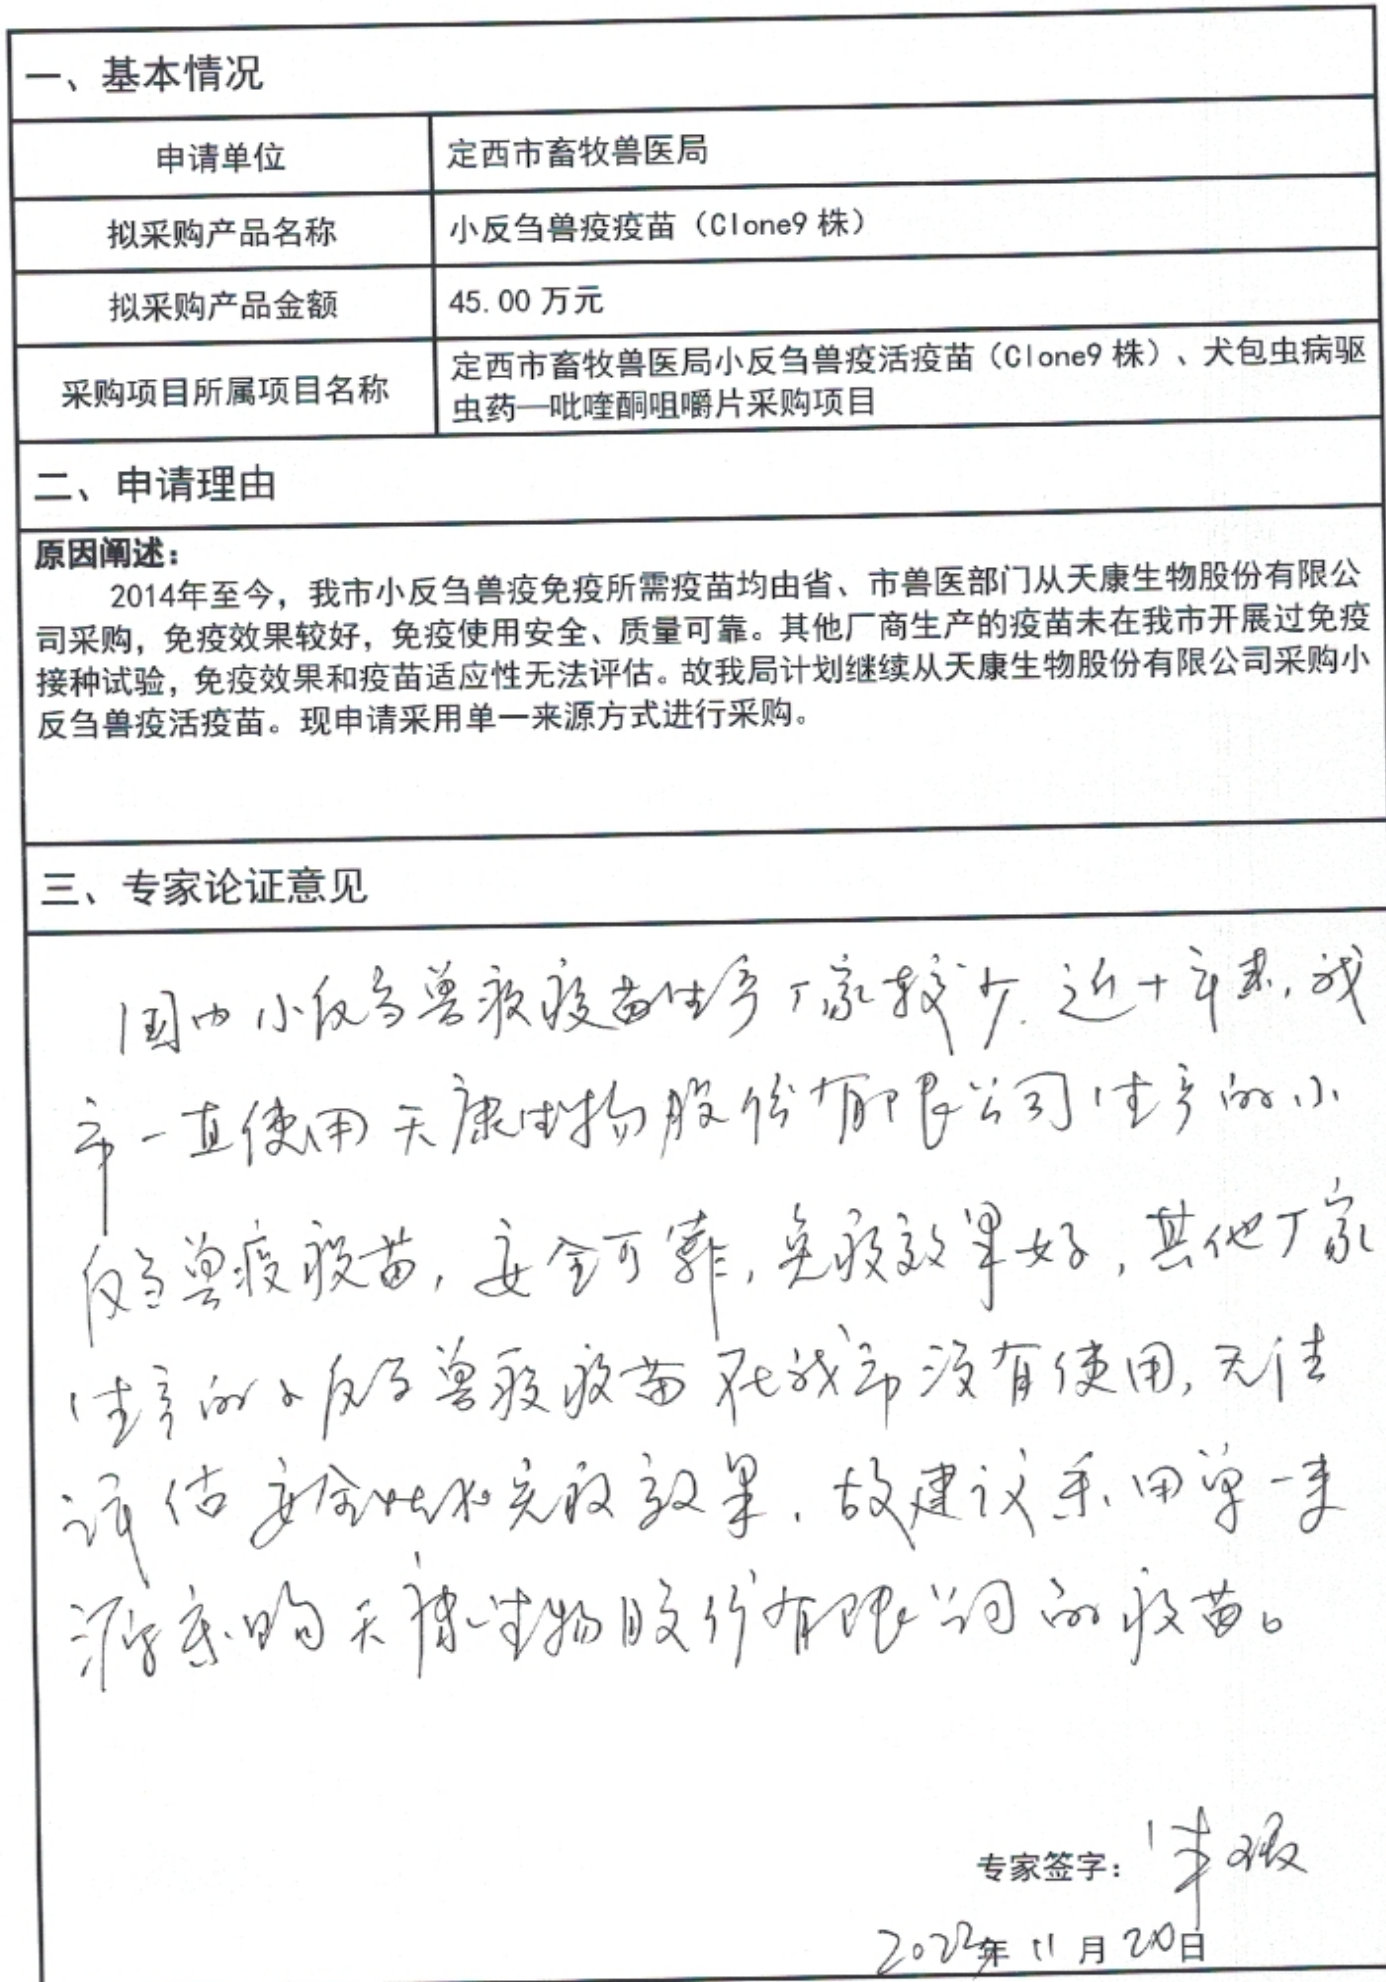 一、基本情况
申请单位 定西市畜牧兽医局
拟采购产品名称 小反刍兽疫疫苗（Clone9 株）
拟采购产品金额 45.00 万元
采购项目所属项目名称 定西市畜牧兽医局小反刍兽疫活疫苗（Clone9 株）、犬包虫病驱
虫药—吡喹酮咀嚼片采购项目
二、申请理由
原因阐述：
2014年至今，我市小反刍兽疫免疫所需疫苗均由省、市兽医部门从天康生物股份有限公
司采购，免疫效果较好，免疫使用安全、质量可靠。其他厂商生产的疫苗未在我市开展过免疫
接种试验，免疫效果和疫苗适应性无法评估。故我局计划继续从天康生物股份有限公司采购小
反刍兽疫活疫苗。现申请采用单一来源方式进行采购。
三、专家论证意见
国内小反刍兽疫疫苗生产厂家较少，近十年来，我
市一直使用天康生物股份有限公司生产的小
反刍兽疫疫苗，安全可靠，免疫效果好，其他厂家
生产的小反刍兽疫疫苗在我市没有使用，无法
评估安全性和免疫效果，故建议采用单一来
源采购天康生物股份有限公司的疫苗。
专家签字：
年 11 月 20 日